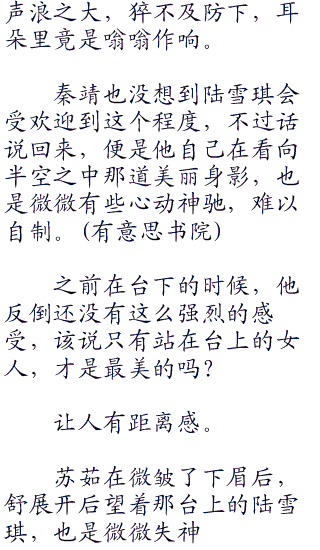 声浪之大，猝不及防下，耳
朵里竟是嗡嗡作响。
秦靖也没想到陆雪琪会
受欢迎到这个程度，不过话
说回来，便是他自己在看向
半空之中那道美丽身影，也
是微微有些心动神驰，难以
自制。(有意思书院)
之前在台下的时候，他
反倒还没有这么强烈的感
受，该说只有站在台上的女
人，才是最美的吗？
让人有距离感。
苏茹在微皱了下眉后，
舒展开后望着那台上的陆雪
琪，也是微微失神